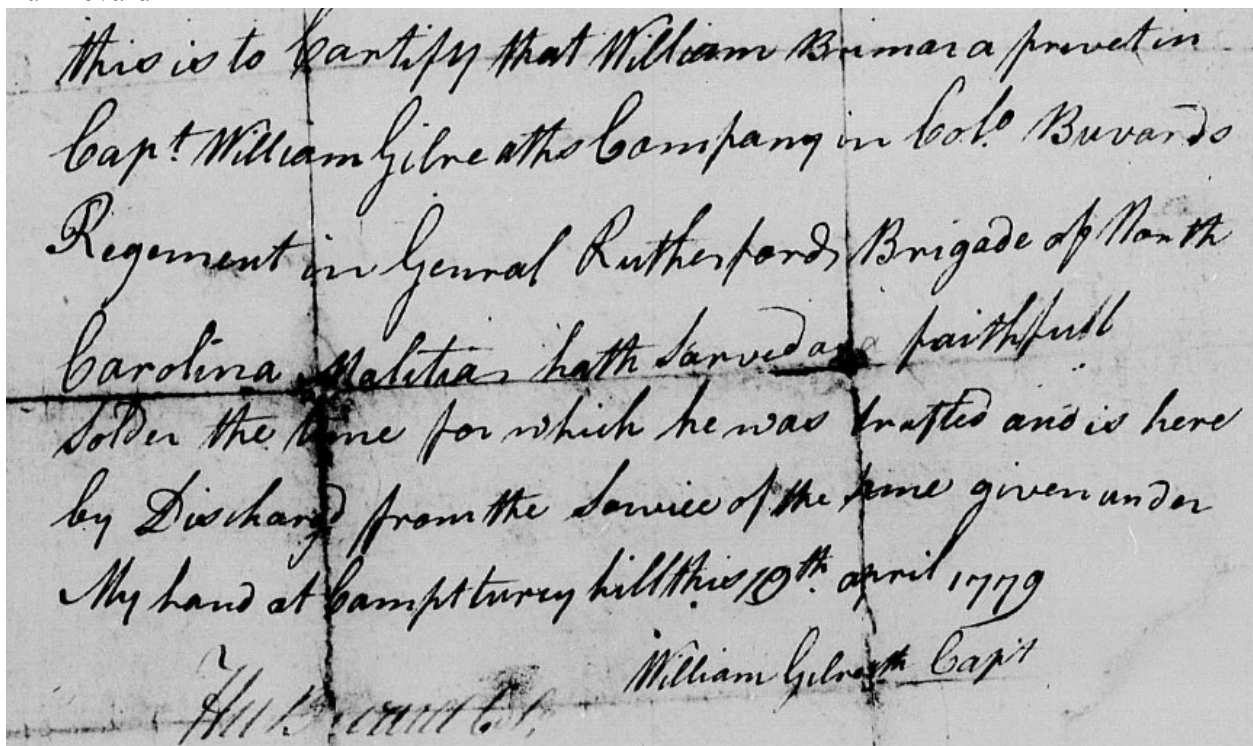 this is to Cartify that William Brimar a privet in
Capt. William Gilreaths Company in Colo. Buvards
Regement in Genral Rutherfords Brigade of North
Carolina Malitia hath Sarved as a faithfull
Solder the time for which he was drafted and is here
by Discharg'd from the Service of the same given under
My hand at Campt turcy hill this 19th. april 1779
William Gilreath Capt